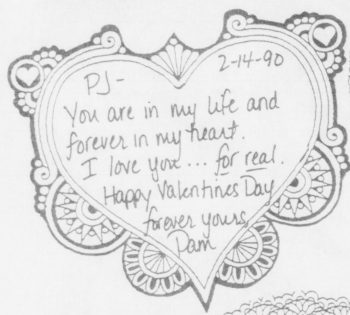 2-14-90
PJ-
You are in my life and
forever in my heart.
I love you... for real.
Happy Valentines Day
forever yours,
Pam